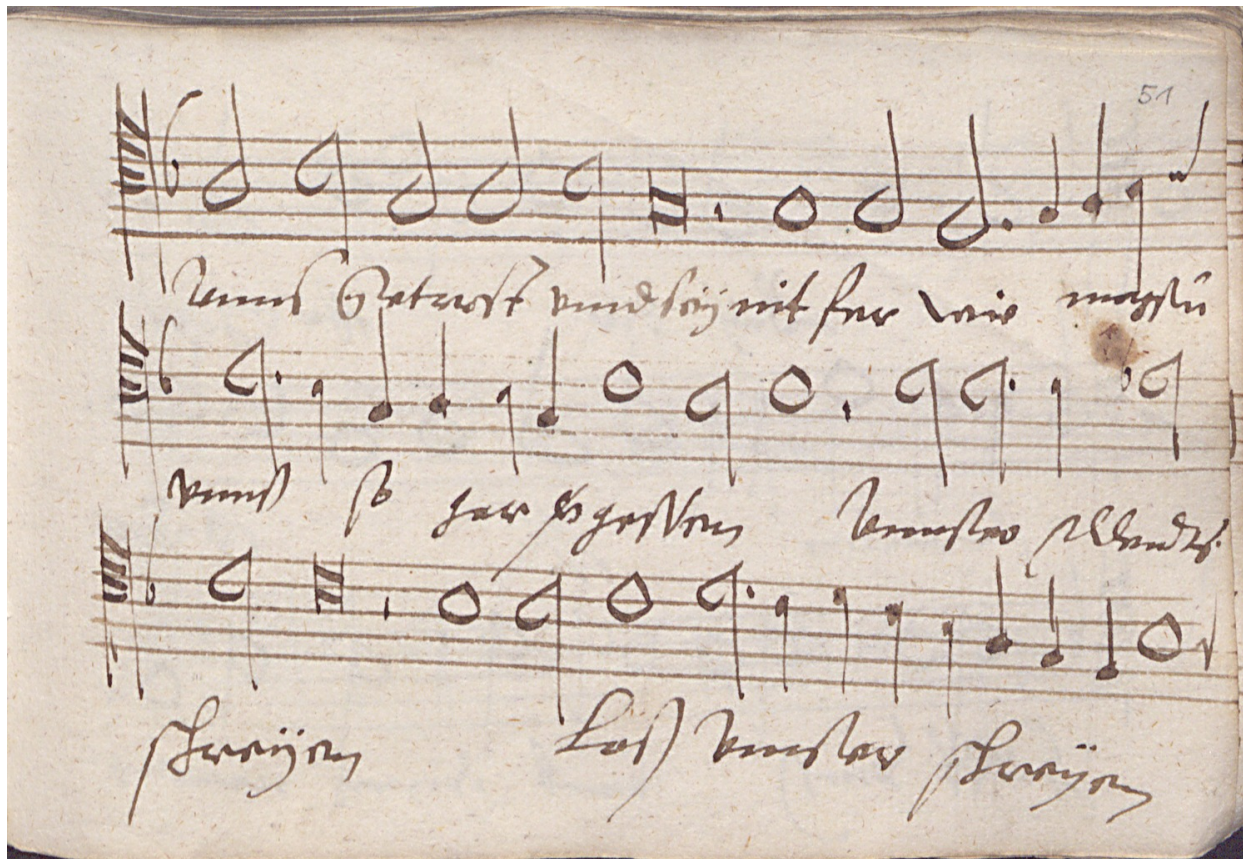 51
vnns getrost vnnd sey nit fer wie magstu
vnns so gar vergessen vnnser ellendts
schreyen Laß vnnser schreyen